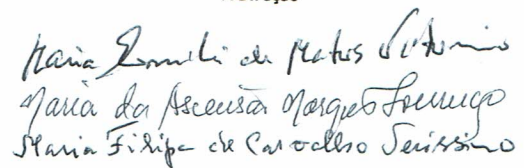 Maria Emília de Matos Vitorino
Maria da Ascensão Marques Lourenço
Maria Filipa de Carvalho Veríssimo